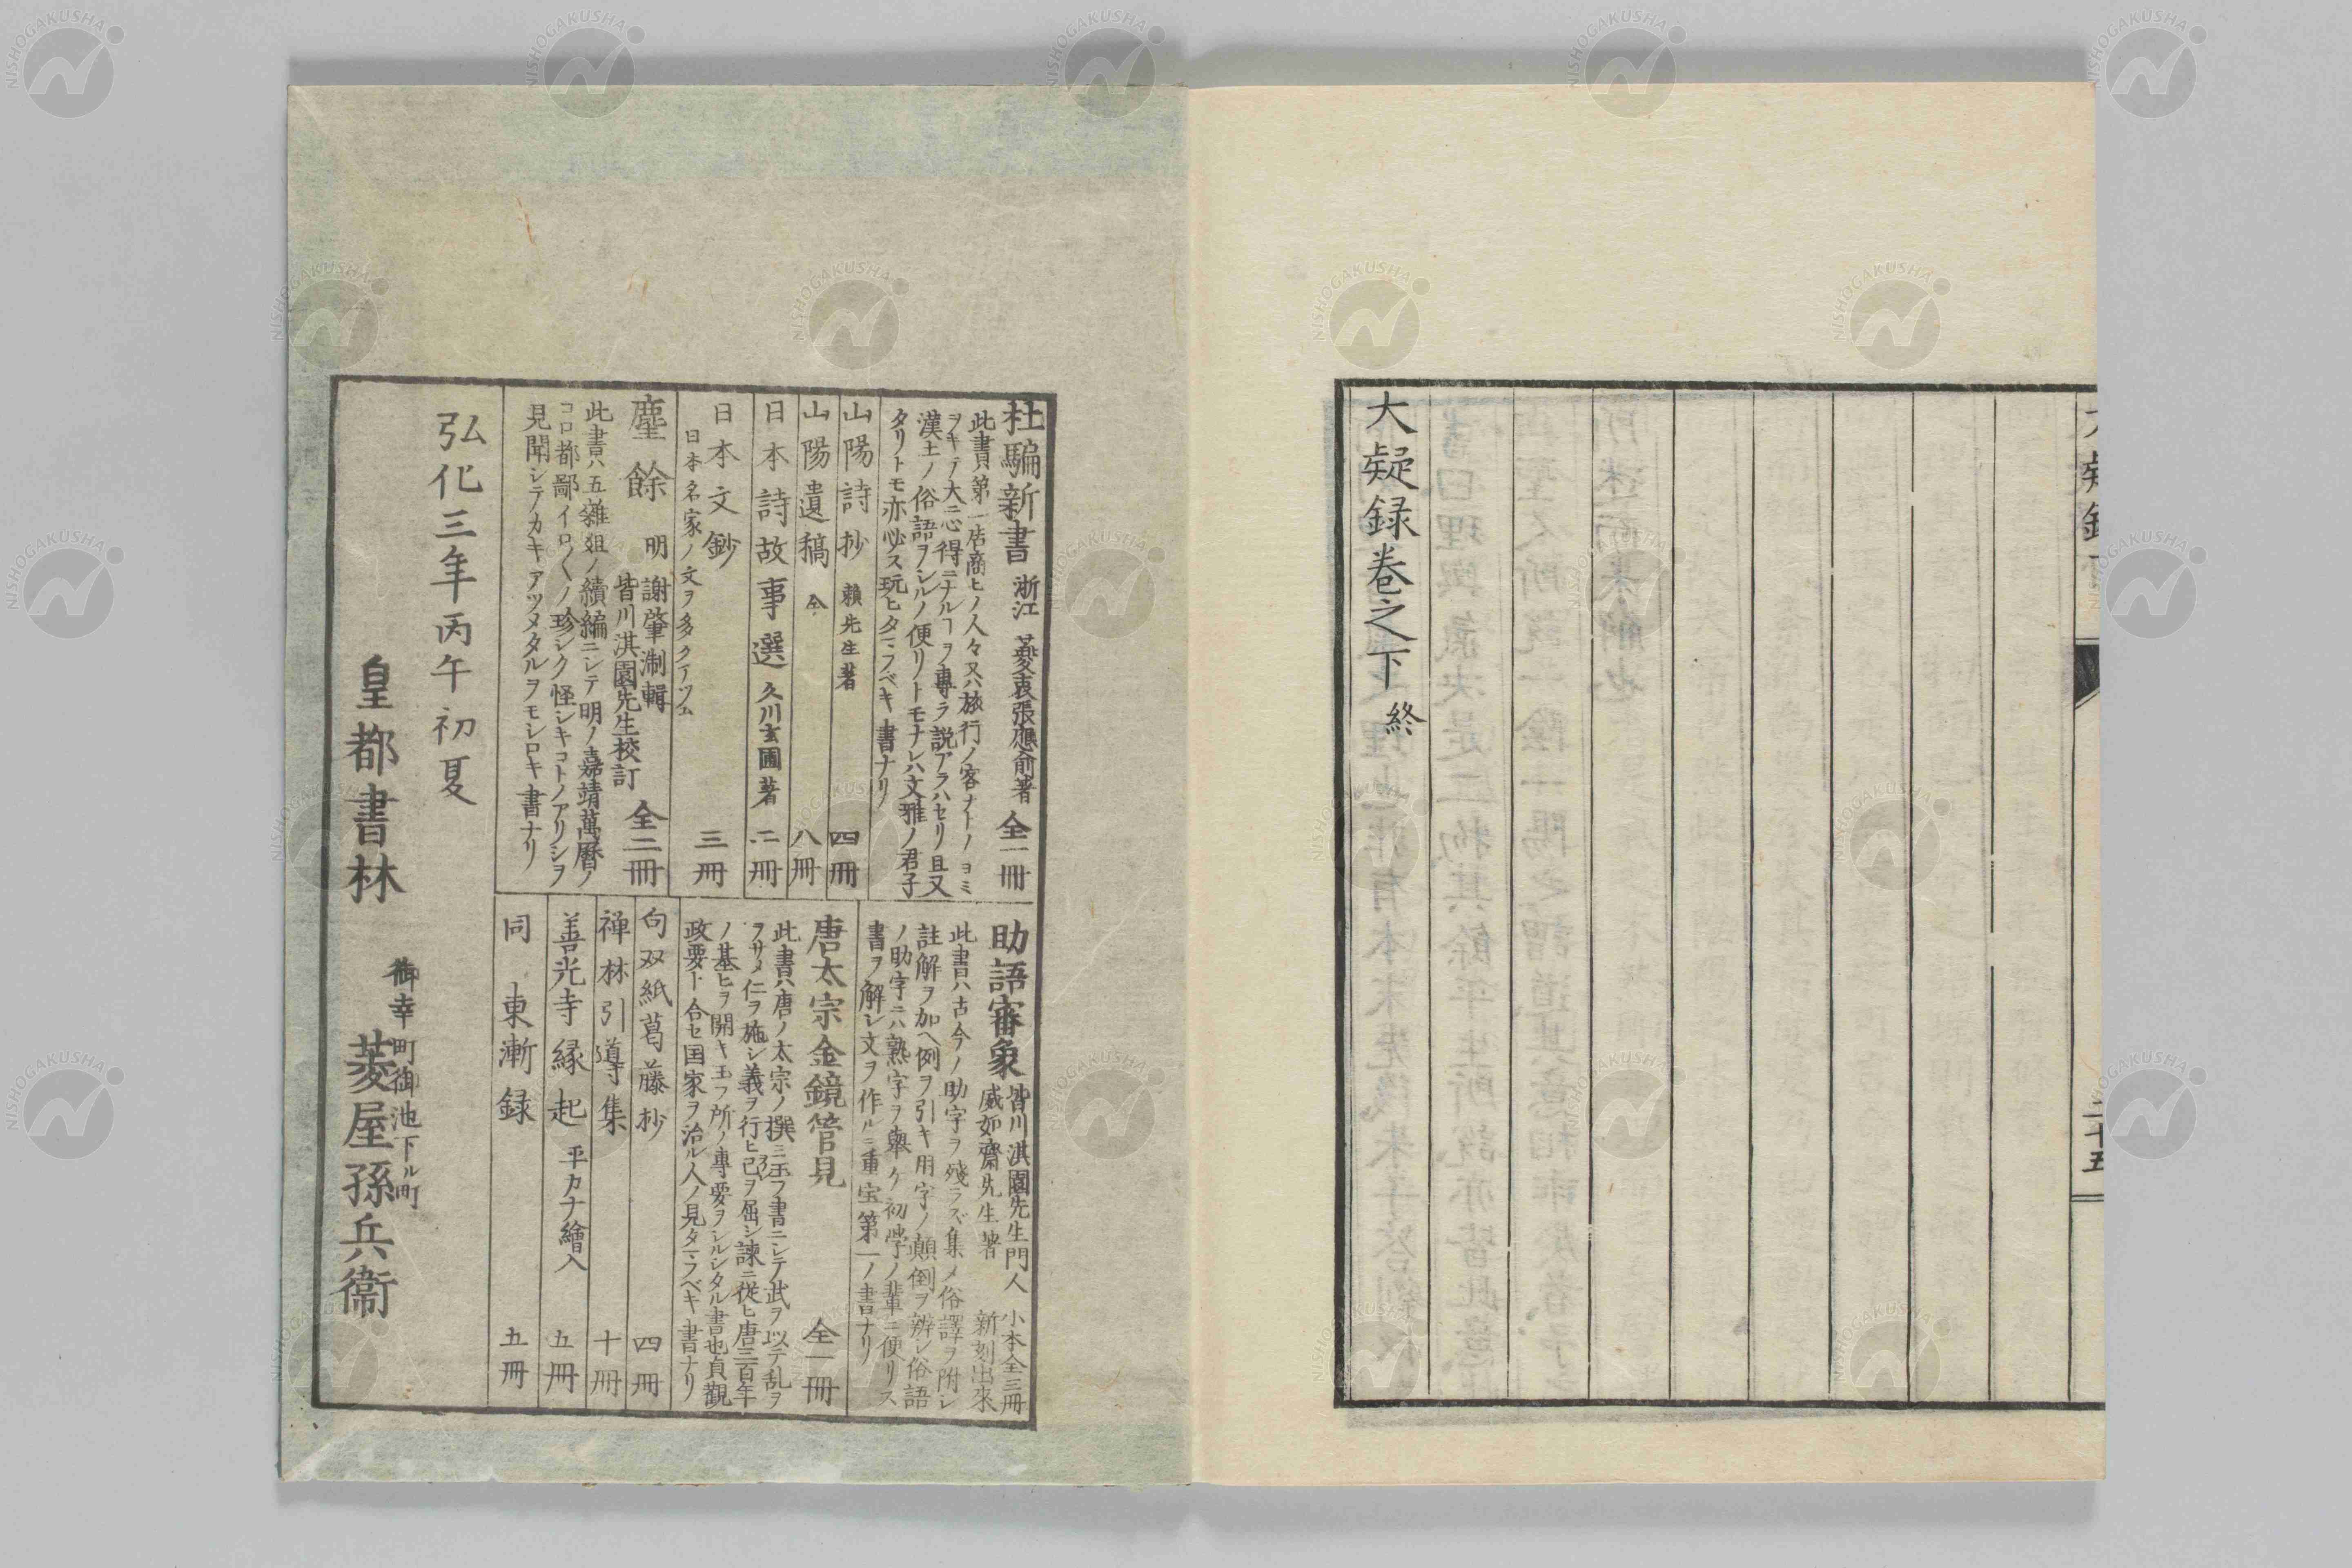 大疑録卷之下 終
杜騙新書 浙江 夔衷張應兪著 全一冊
此書第一店商ヒノ人々又ハ旅行ノ客ナトノヨミ
ヲキテ大ニ心得ニナルヿヲ專ラ説アラハセリ且又
漢土ノ俗語ヲシルノ便リトモナレハ文雅ノ君子
タリトモ亦必ス玩ヒタマフベキ書ナリ
山陽詩抄 賴先生著 四冊
山陽遺稿 仝 八冊
日本詩故事選 久川玄圃著 二冊
日本文鈔 三冊
日本名家ノ文ヲ多クアツム
塵餘 明 謝肇淛輯 皆川淇園先生校訂 全二冊
此書ハ五雜俎ノ續編ニシテ明ノ嘉靖萬曆ノ
コロ都鄙イロ〱ノ珍シク怪シキコトノアリシヲ
見聞シテカキアツメタルヲモシロキ書ナリ
助語審象 皆川淇園先生門人 威如齋先生著 小本全三冊 新刻出來
此書ハ古今ノ助字ヲ殘ラズ集メ俗譯ヲ附シ
註解ヲ加ヘ例ヲ引キ用字ノ顛倒ヲ辨シ俗語
ノ助字ニハ熟字ヲ舉ケ初學ノ輩ニ便リス
書ヲ解シ文ヲ作ルニ重宝第一ノ書ナリ
唐太宗金鏡管見 全一冊
此書ハ唐ノ太宗ノ撰ミ玉フ書ニシテ武ヲ以テ乱ヲ
ヲサメ仁ヲ施シ義ヲ行ヒ己ヲ屈シ諫ニ從ヒ唐三百年
ノ基ヒヲ開キ玉フ所ノ專要ヲシルシタル書也貞觀
政要ト合セ国家ヲ治ル人ノ見タマフベキ書ナリ
句双紙葛藤抄 四冊
禅林引導集 十冊
善光寺縁起 平カナ繪入 五冊
同東漸録 五冊
弘化三年丙午初夏
御幸町御池下ル町
皇都書林 菱屋孫兵衞